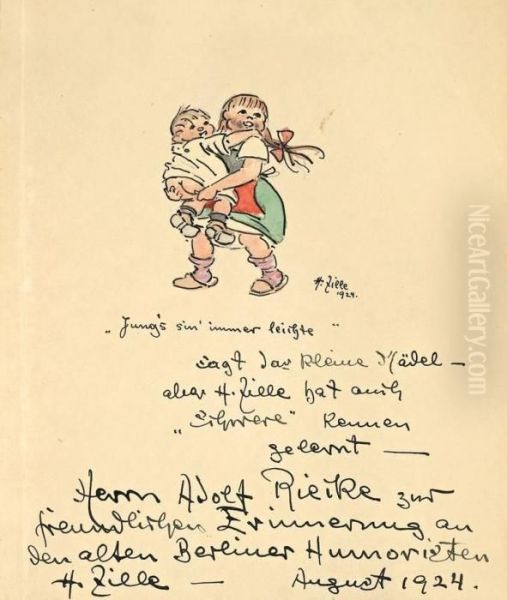 H. Zille
1924.
„Jung's sin' immer leichte"
sagt das kleine Mädel —
aber H. Zille hat auch
„Schwere" kennen
gelernt —
Herrn Adolf Rieike zur
freundlichen Erinnerung an
den alten Berliner Humoristen
H. Zille — August 1924.
NiceArtGallery.com